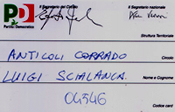 PD
Partito Democratico
Il Segretario del Circolo
Il Segretario Nazionale
Struttura Territoriale
ANTICOLI CORRADO
Circolo
LUIGI SCIALANCA
Nome e Cognome
04546